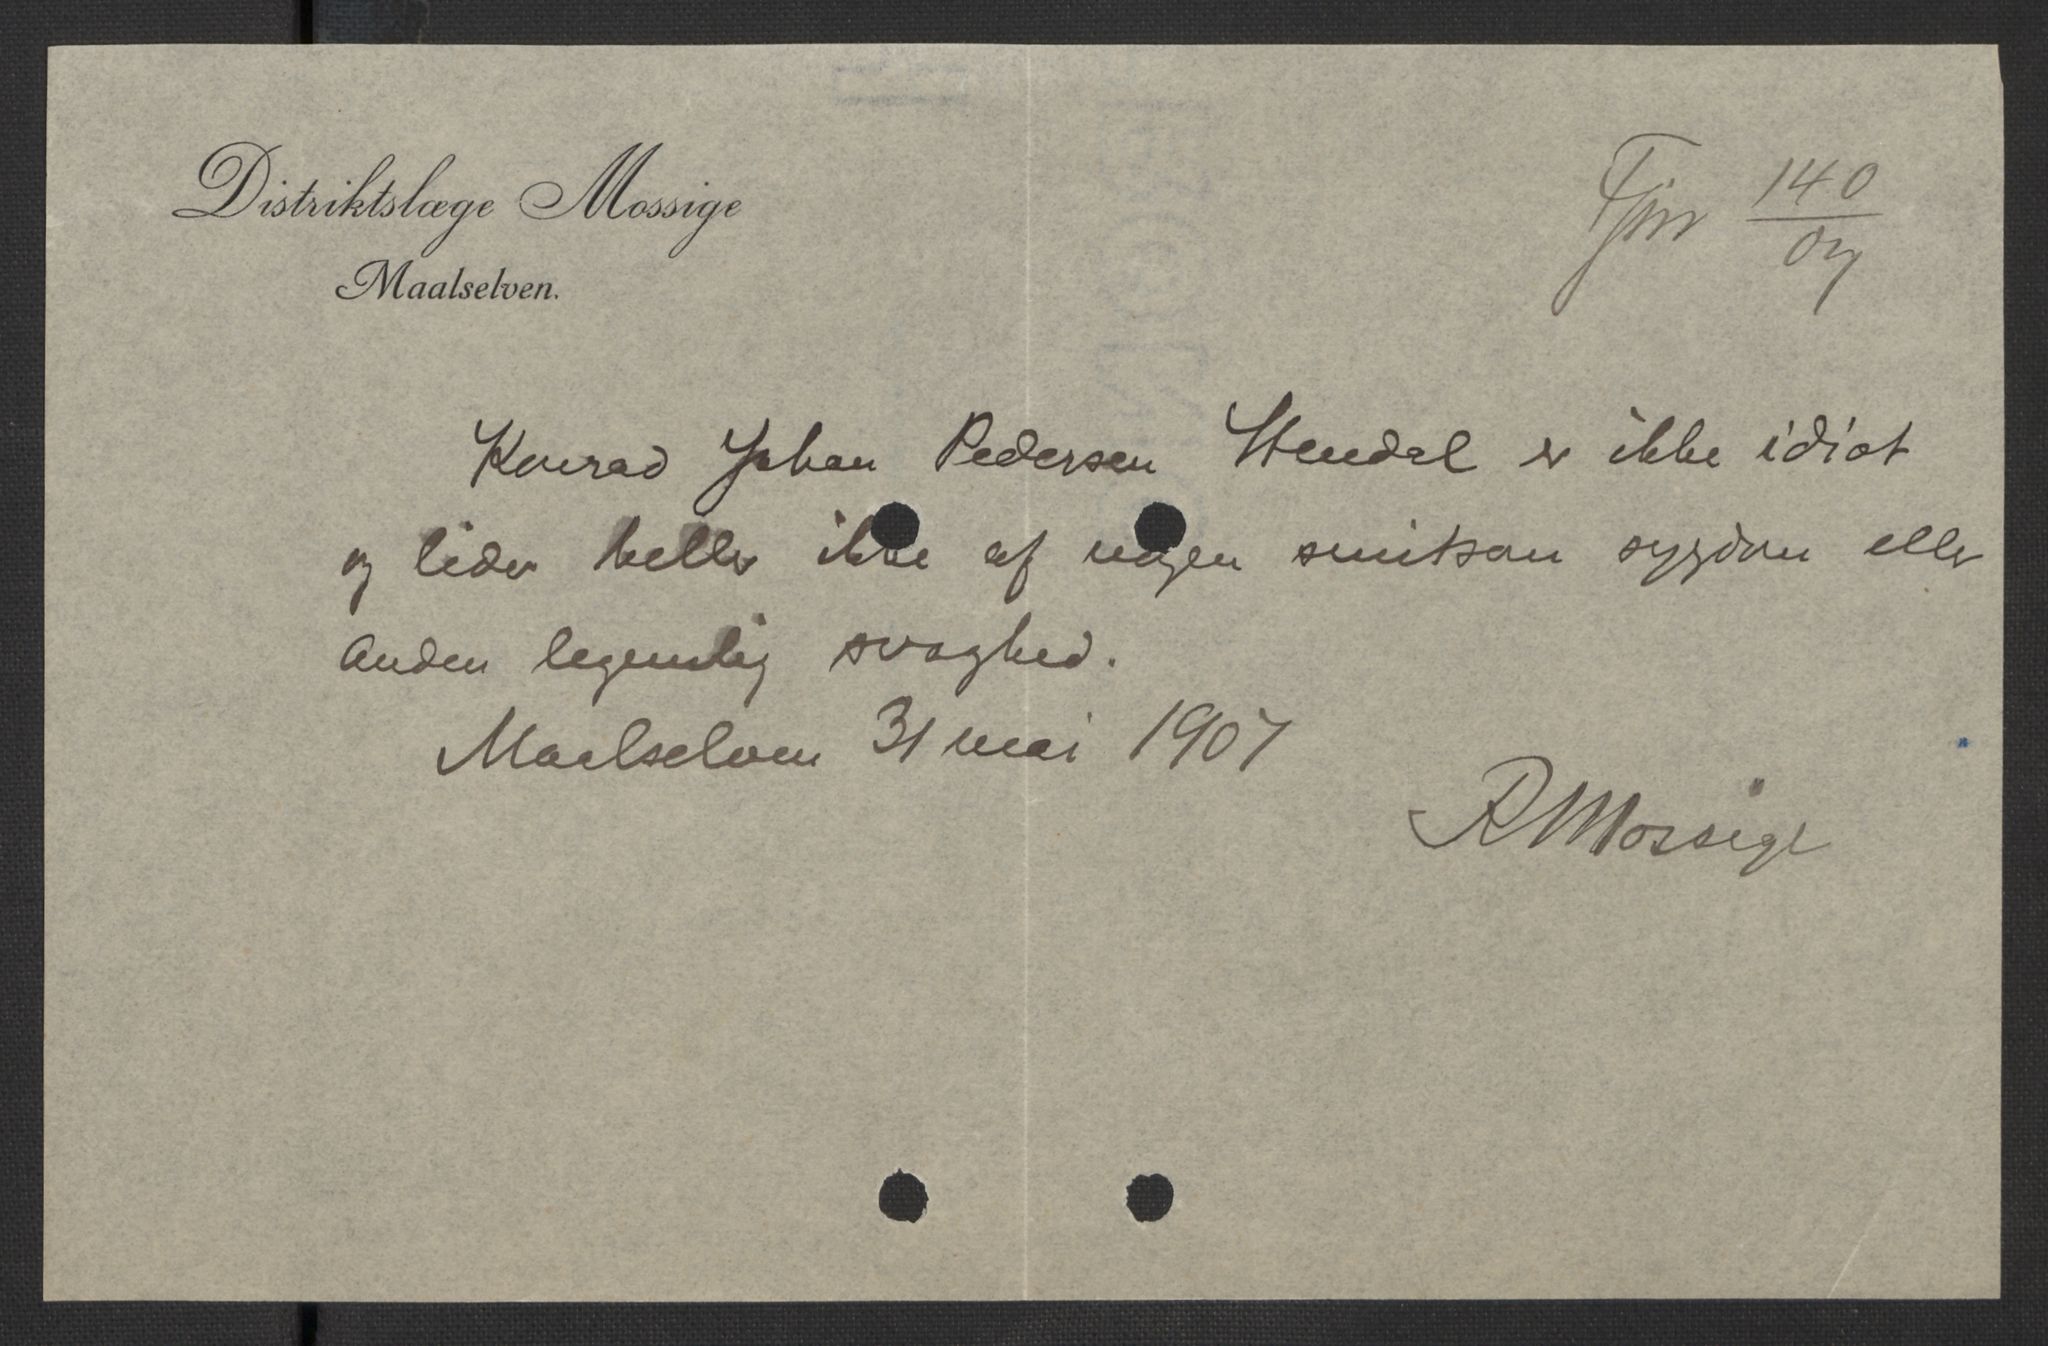 Distriktslæge Mossige
Maalselven.
140
07
Konrad Johan Pedersen Stendal er ikke idiot
og lider heller ikke af nogen smitsom sygdom eller
anden legemlig svaghed.
Maalselven 31 mai 1907
R Mossige